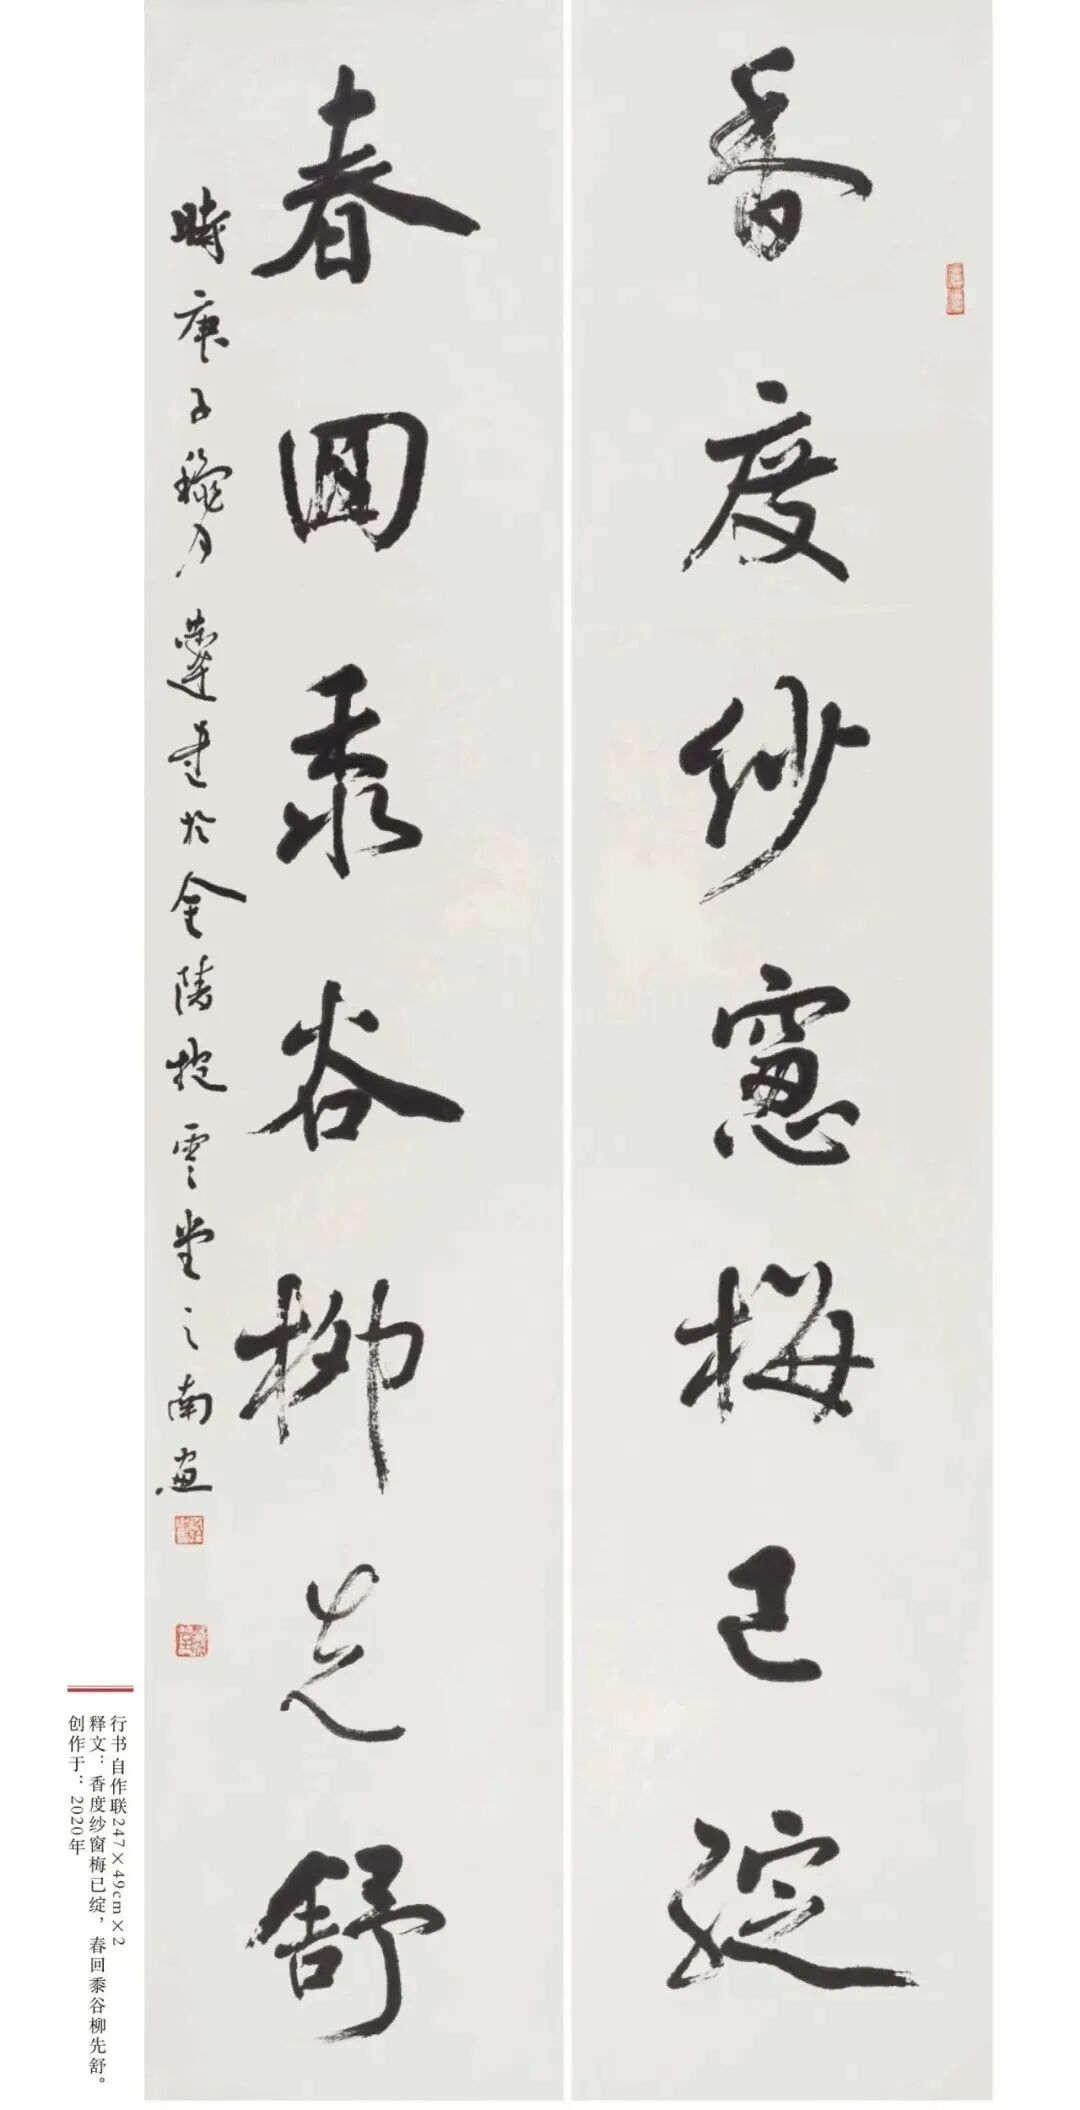 香度纱窓梅已綻
春回黍谷柳先舒
時庚子穐月蘷建於金陵抱雲堂之南窗
行书自作联247×49cm×2
释文：香度纱窗梅已绽，春回黍谷柳先舒。
创作于：2020年